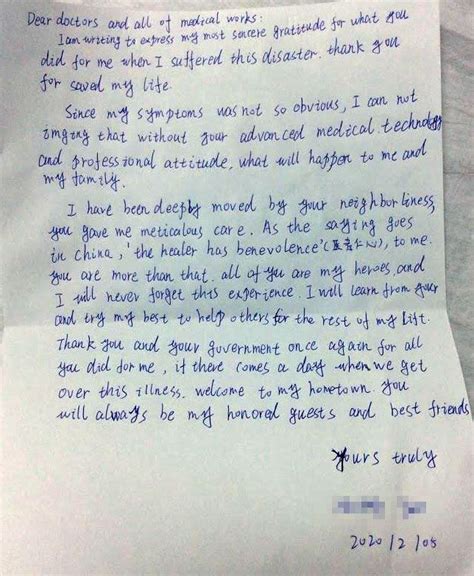 Dear doctors and all of medical works:
I am writing to express my most sincere gratitude for what you
did for me when I suffered this disaster. thank you
for saved my life.
Since my symptoms was not so obvious, I can not
imging that without your advanced medical technology
and professional attitude, what will happen to me and
my family.
I have been deeply moved by your neighborliness,
you gave me meticalous care. As the saying goes
in china, 'the healer has benevolence' (医者仁心), to me.
you are more than that. all of you are my heroes, and
I will never forget this experience. I will learn from your
and try my best to help others for the rest of my lift.
Thank you and your government once again for all
you did for me, if there comes a day when we get
over this illness. welcome to my hometown. you
will always be my honored guests and best friends
yours truly
2020/2/05